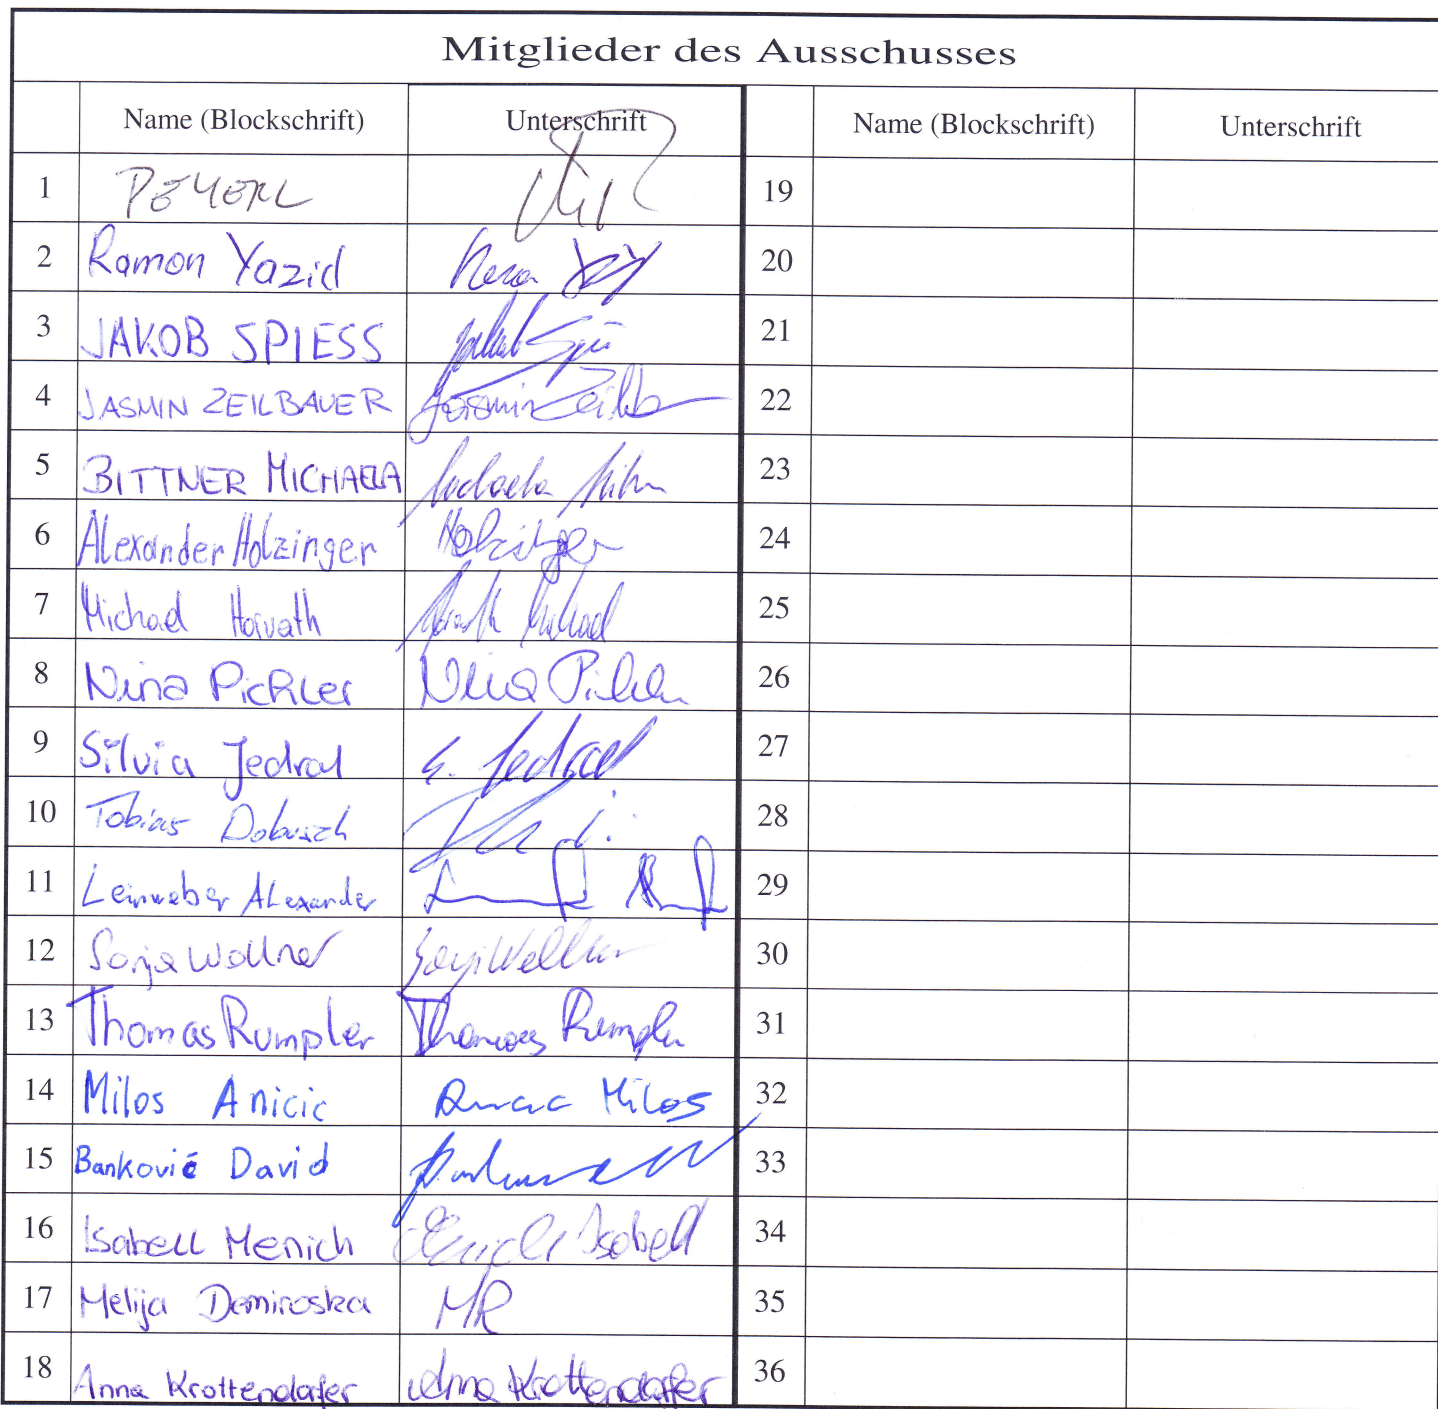 Mitglieder des Ausschusses
Name (Blockschrift) Unterschrift Name (Blockschrift) Unterschrift
1 PEYERL 19
2 Ramon Yazid 20
3 JAKOB SPIESS 21
4 JASMIN ZEILBAUER Jasmin Zeilb 22
5 BITTNER MICHAELA Michaela 23
6 Alexander Holzinger Holzinger 24
7 Michael Horvath Horvath Michael 25
8 Nina Pichler Nina Pichler 26
9 Silvia Jedral S. Jedral 27
10 Tobias Dobusch 28
11 Leinweber Alexander 29
12 Sonja Wollner Sonja Wollner 30
13 Thomas Rumpler Thomas Rumpler 31
14 Milos Anicic Anicic Milos 32
15 Banković David 33
16 Isabell Menich Menich Isabell 34
17 Melija Demiroska MR 35
18 Anna Krottendorfer Anna Krottendorfer 36